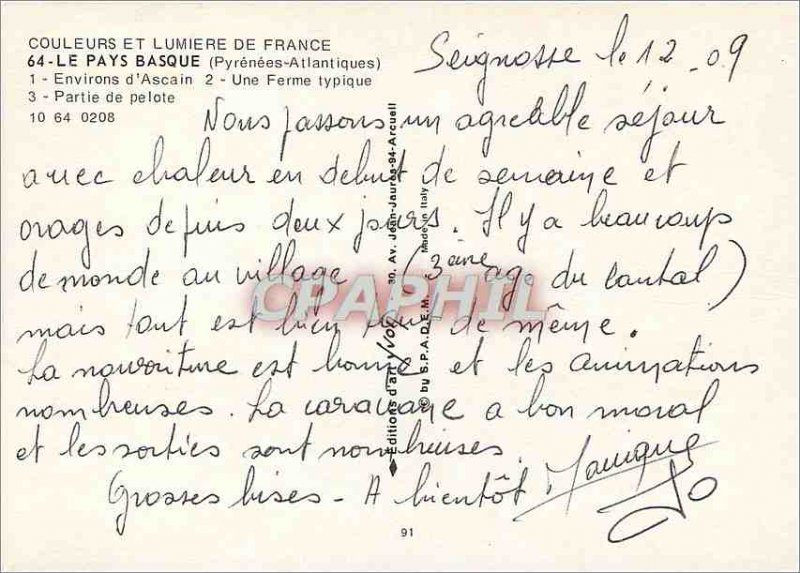 COULEURS ET LUMIERE DE FRANCE
64 - LE PAYS BASQUE (Pyrénées-Atlantiques)
1 - Environs d'Ascain 2 - Une Ferme typique
3 - Partie de pelote
10 64 0208
Seignosse le 12 - 09
Nous passons un agréable séjour
avec chaleur en debut de semaine et
orages depuis deux jours. Il y a beaucoup
de monde au village (3 ème age du Cantal)
mais tout est bien tout de même.
La nourriture est bonne et les animations
nombreuses. La caravane a bon moral
et les sorties sont nombreuses.
Grosses bises - A bientôt Monique
Editions d'art YVON 30, Av. Jean-Jaurès-94-Arcueil
© by S.P.A.D.E.M. Made in Italy
CPAPHIL
91